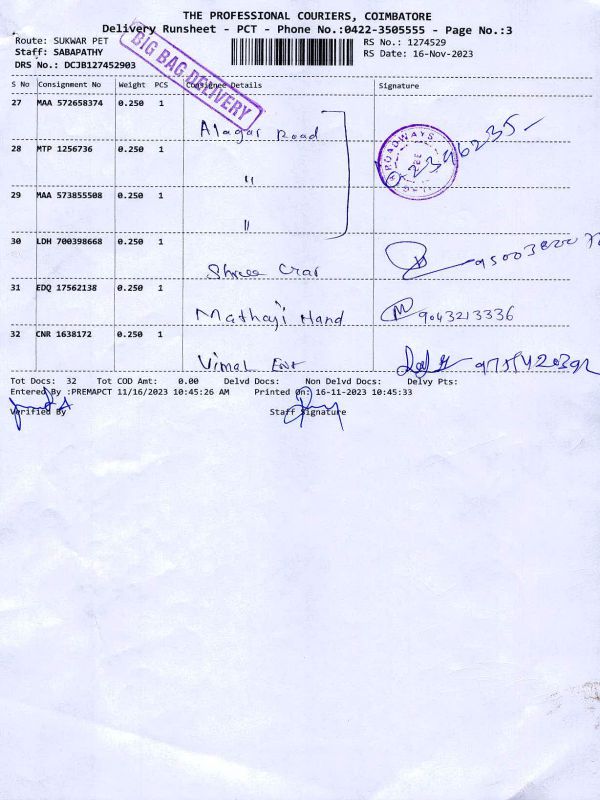 THE PROFESSIONAL COURIERS, COIMBATORE
Delivery Runsheet - PCT - Phone No.:0422-3505555 - Page No.:3
Route: SUKWAR PET
RS No.: 1274529
Staff: SABAPATHY
RS Date: 16-Nov-2023
DRS No.: DCJB127452903
BIG BAG DELIVERY
S No Consignment No Weight PCS Consignee Details Signature
27 MAA 572658374 0.250 1
Alagar Road
28 MTP 1256736 0.250 1
ROADWAYS
"
29 MAA 573855508 0.250 1
"
30 LDH 700398668 0.250 1
Shree
31 EDQ 17562138 0.250 1
Mathaji Hand 9043213336
32 CNR 1638172 0.250 1
Vimal Ent
Tot Docs: 32 Tot COD Amt: 0.00 Delvd Docs: Non Delvd Docs: Delvy Pts:
Entered By :PREMAPCT 11/16/2023 10:45:26 AM Printed On: 16-11-2023 10:45:33
Verified By Staff Signature